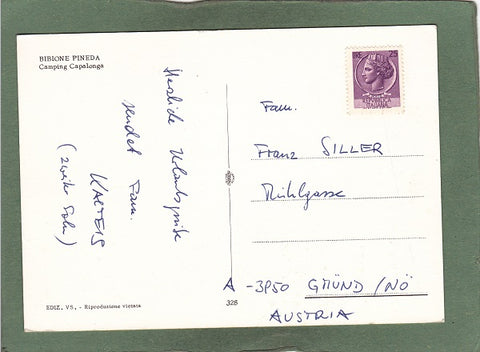 BIBIONE PINEDA
Camping Capalonga
Herzliche Urlaubsgrüße
sendet Fam.
KALTEIS
25
Fam.
Franz SILLER
Mühlgasse
A -3950 GMÜND /NÖ
AUSTRIA
EDIZ. VS. - Riproduzione vietata
328